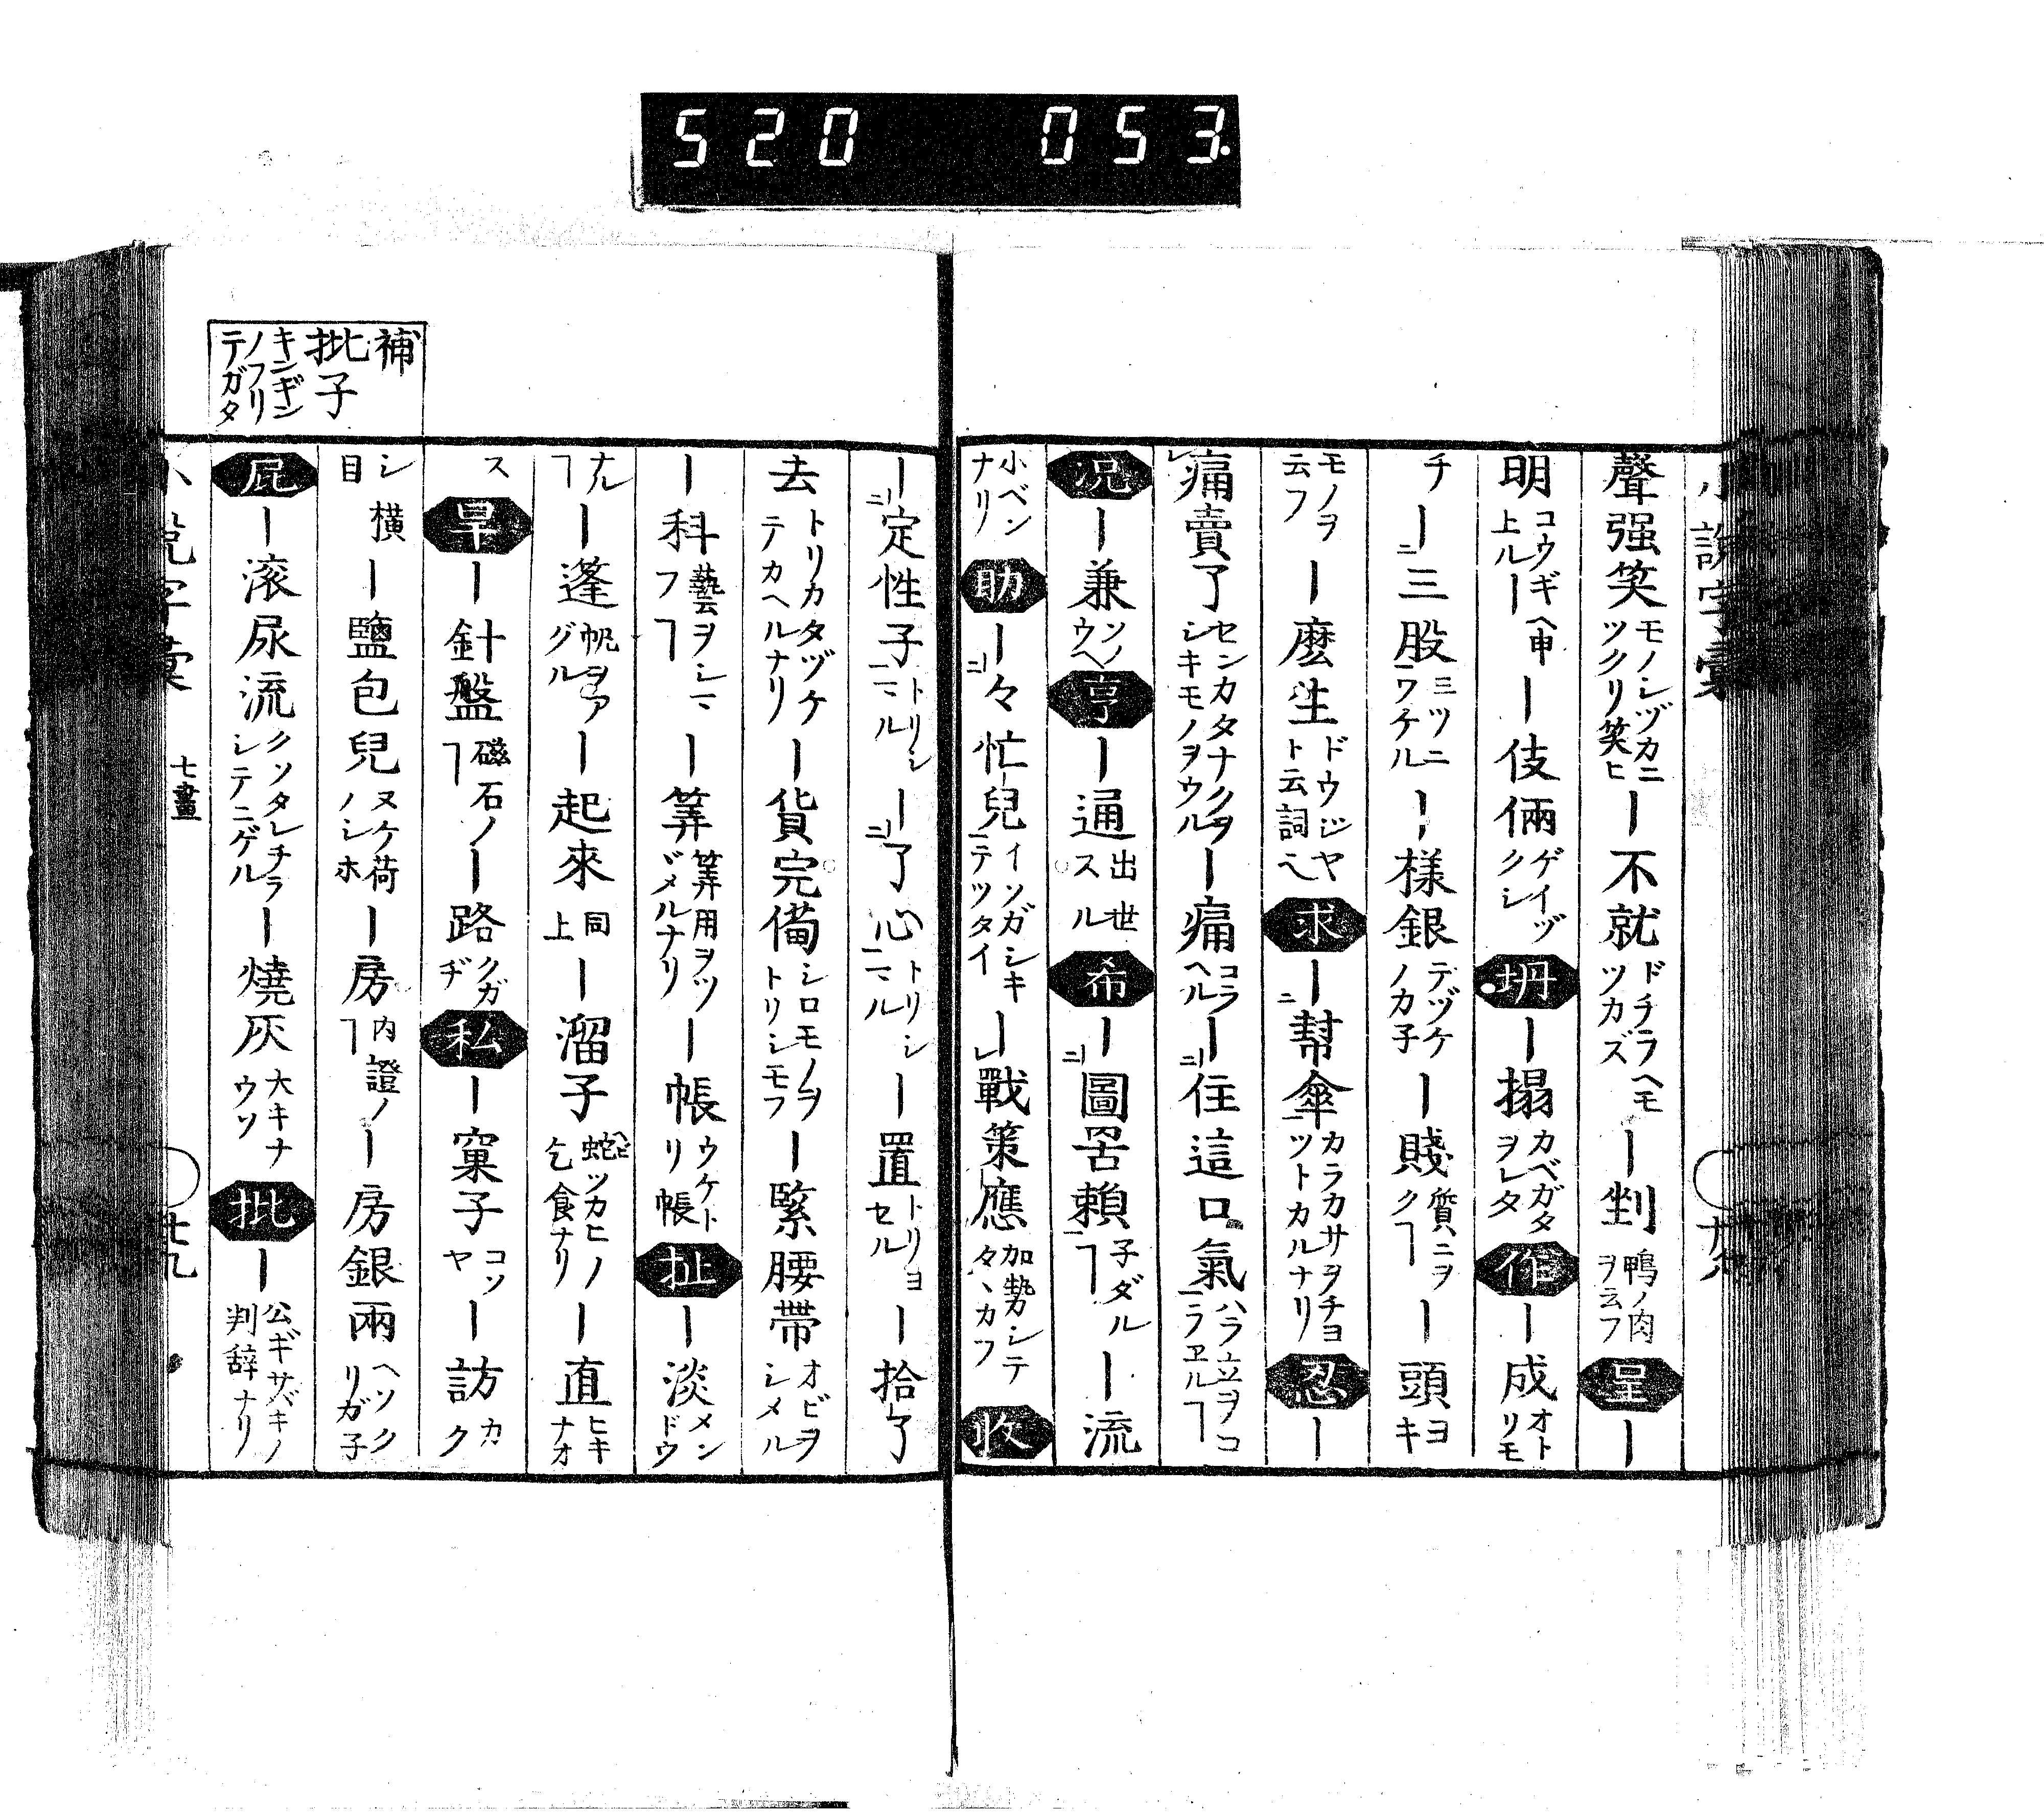 520 053.
聲强笑モノシヅカニツクリ笑ヒー不就ドチラヘモツカズー剉鴨ノ肉ヲ云フ呈ー
明コウギヘ申上ルー伎倆ゲイヅクシ坍ー搨カベガタヲレタ作ー成オトリモ
チー三股三ツニワケルー様銀テヅケノカ子ー賤質ニヲクヿー頭ヨキ
モノヲ云フー麽生ドウジヤト云詞求ー幇傘カラカサヲチヨツトカルナリ忍ー
痛賣了センカタナクヲシキモノヲウルー痛コラヘルー住這口氣ハラ立ヲコラヱルヿ
况ー兼ソノウヘ亨ー通出世スル希ー圖罟賴子ダルヿー流
小ベンナリ助ー々忙兒イソガシキテツタイー戰策應加勢シテタヽカフ收
ー定性子トリシマルー了心トリシマルー置トリヨセルー拾了
去トリカタヅケテカヘルナリー貨完備シロモノヲトリシモフー緊腰帶オビヲシメル
ー科藝ヲシマ云フヿー筭筭用ヲツヾメルナリー帳ウケトリ帳扯ー淡メンドウ
ナルヿー蓬帆ヲアグルー起來同上ー溜子蛇ツカヒノ乞食ナリー直ヒキナオ
ス旱ー針盤磁石ノヿー路クガヂ私ー窠子コソヤー訪カク
シ目橫ー鹽包兒ヌケ荷ノシホー房内證ノヿー房銀兩ヘソクリガ子
屁ー滚尿流クソタレチラシテニゲルー燒灰大キナウソ批ー公ギサバキノ判辞ナリ
補
批子キンギンノフリテガタ
七畫